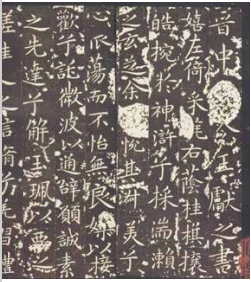 晉中令王獻之書
嬉左倚采旄右蔭桂旗攘
皓捥於神滸兮採湍瀨
之玄芝余悅其淑美兮
心振蕩而不怡無良媒以接
歡兮託微波以通辭願誠素
之先達兮解玉珮以要之
嗟佳人之信脩羌習禮